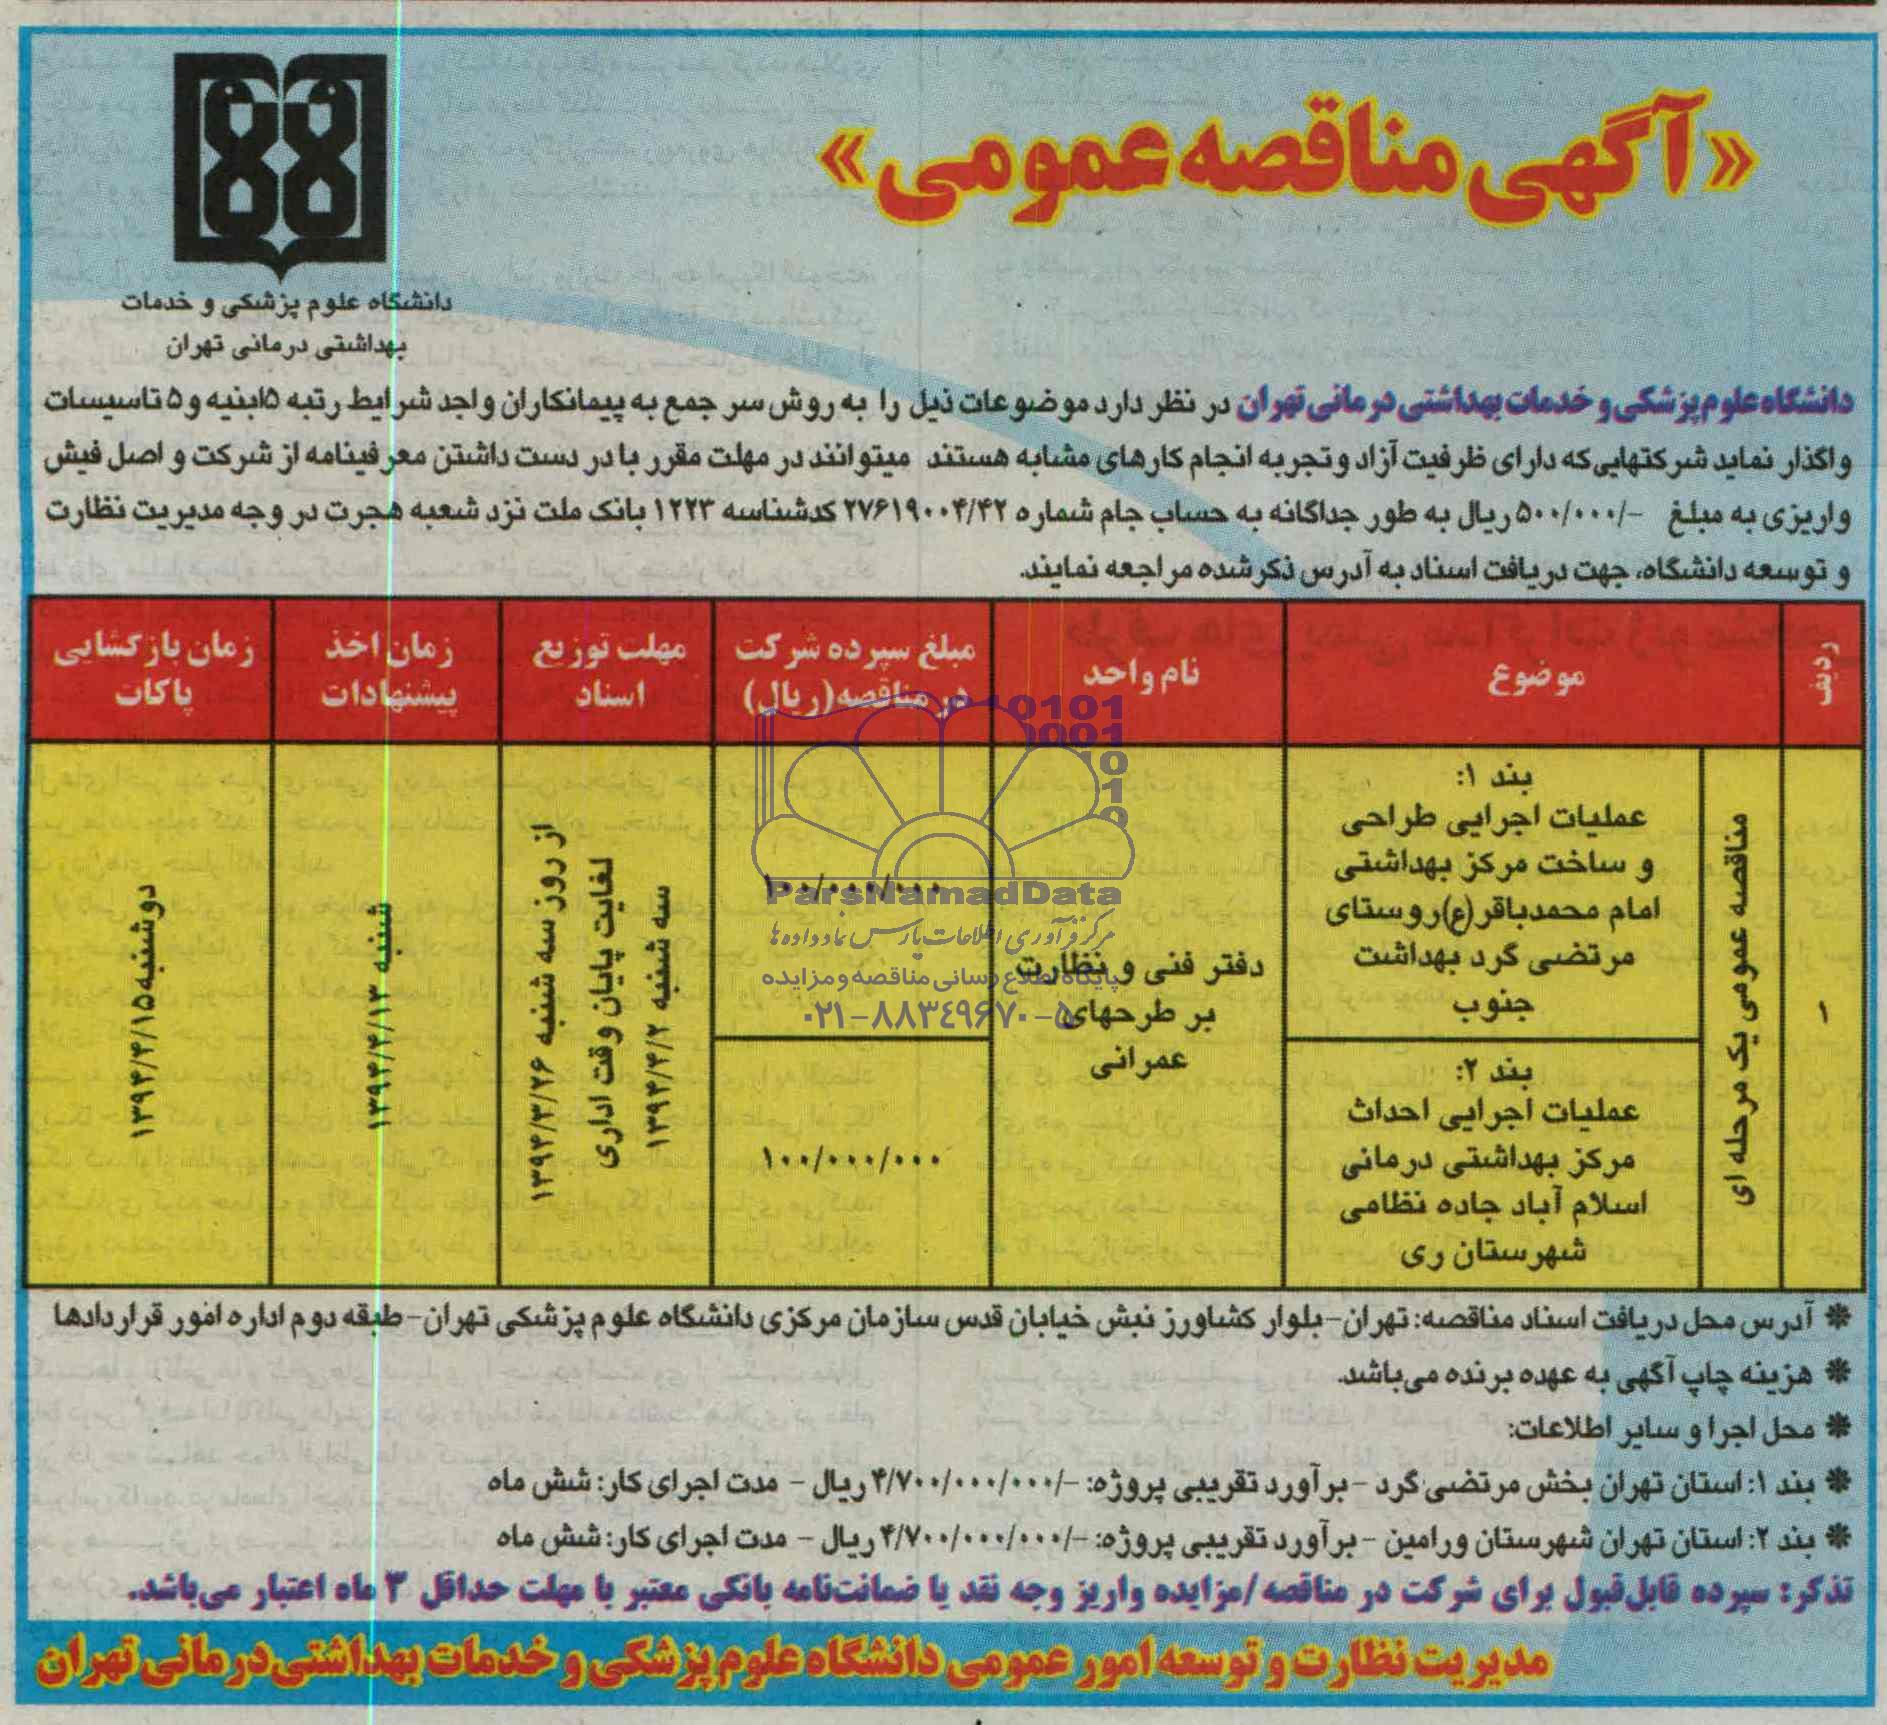 «آگهی مناقصه عمومی»
دانشگاه علوم پزشکی و خدمات
بهداشتی درمانی تهران
دانشگاه علوم پزشکی و خدمات بهداشتی درمانی تهران در نظر دارد موضوعات ذیل را به روش سر جمع به پیمانکاران واجد شرایط رتبه ۵ابنیه و ۵ تاسیسات
واگذار نماید شرکتهایی که دارای ظرفیت آزاد و تجربه انجام کارهای مشابه هستند میتوانند در مهلت مقرر با در دست داشتن معرفینامه از شرکت و اصل فیش
واریزی به مبلغ -/۵۰۰/۰۰۰ ریال به طور جداگانه به حساب جام شماره ۲۷۶۱۹۰۰۴/۴۲ کدشناسه ۱۲۲۳ بانک ملت نزد شعبه هجرت در وجه مدیریت نظارت
و توسعه دانشگاه، جهت دریافت اسناد به آدرس ذکرشده مراجعه نمایند.
ردیف
موضوع
نام واحد
مبلغ سپرده شرکت
در مناقصه (ریال)
مهلت توزیع
اسناد
زمان اخذ
پیشنهادات
زمان بازگشایی
پاکات
۱
مناقصه عمومی یک مرحله ای
بند ۱:
عملیات اجرایی طراحی
و ساخت مرکز بهداشتی
امام محمدباقر(ع)روستای
مرتضی گرد بهداشت
جنوب
بند ۲:
عملیات اجرایی احداث
مرکز بهداشتی درمانی
اسلام آباد جاده نظامی
شهرستان ری
دفتر فنی و نظارت
بر طرحهای
عمرانی
۱۰۰/۰۰۰/۰۰۰
۱۰۰/۰۰۰/۰۰۰
از روز سه شنبه ۱۳۹۴/۳/۲۶
لغایت پایان وقت اداری
سه شنبه ۱۳۹۴/۴/۲
شنبه ۱۳۹۴/۴/۱۳
دوشنبه ۱۳۹۴/۴/۱۵
ParsNamadData
مرکز فرآوری اطلاعات پارس نماد داده ها
پایگاه اطلاع رسانی مناقصه و مزایده
۰۲۱-۸۸۳۴۹۶۷۰-۵
* آدرس محل دریافت اسناد مناقصه: تهران-بلوار کشاورز نبش خیابان قدس سازمان مرکزی دانشگاه علوم پزشکی تهران-طبقه دوم اداره امور قراردادها
* هزینه چاپ آگهی به عهده برنده می‌باشد.
* محل اجرا و سایر اطلاعات:
* بند ۱: استان تهران بخش مرتضی گرد - برآورد تقریبی پروژه: -/۴/۷۰۰/۰۰۰/۰۰۰ ریال - مدت اجرای کار: شش ماه
* بند ۲: استان تهران شهرستان ورامین - برآورد تقریبی پروژه: -/۴/۷۰۰/۰۰۰/۰۰۰ ریال - مدت اجرای کار: شش ماه
تذکر: سپرده قابل‌قبول برای شرکت در مناقصه/مزایده واریز وجه نقد یا ضمانت‌نامه بانکی معتبر با مهلت حداقل ۳ ماه اعتبار می‌باشد.
مدیریت نظارت و توسعه امور عمومی دانشگاه علوم پزشکی و خدمات بهداشتی درمانی تهران